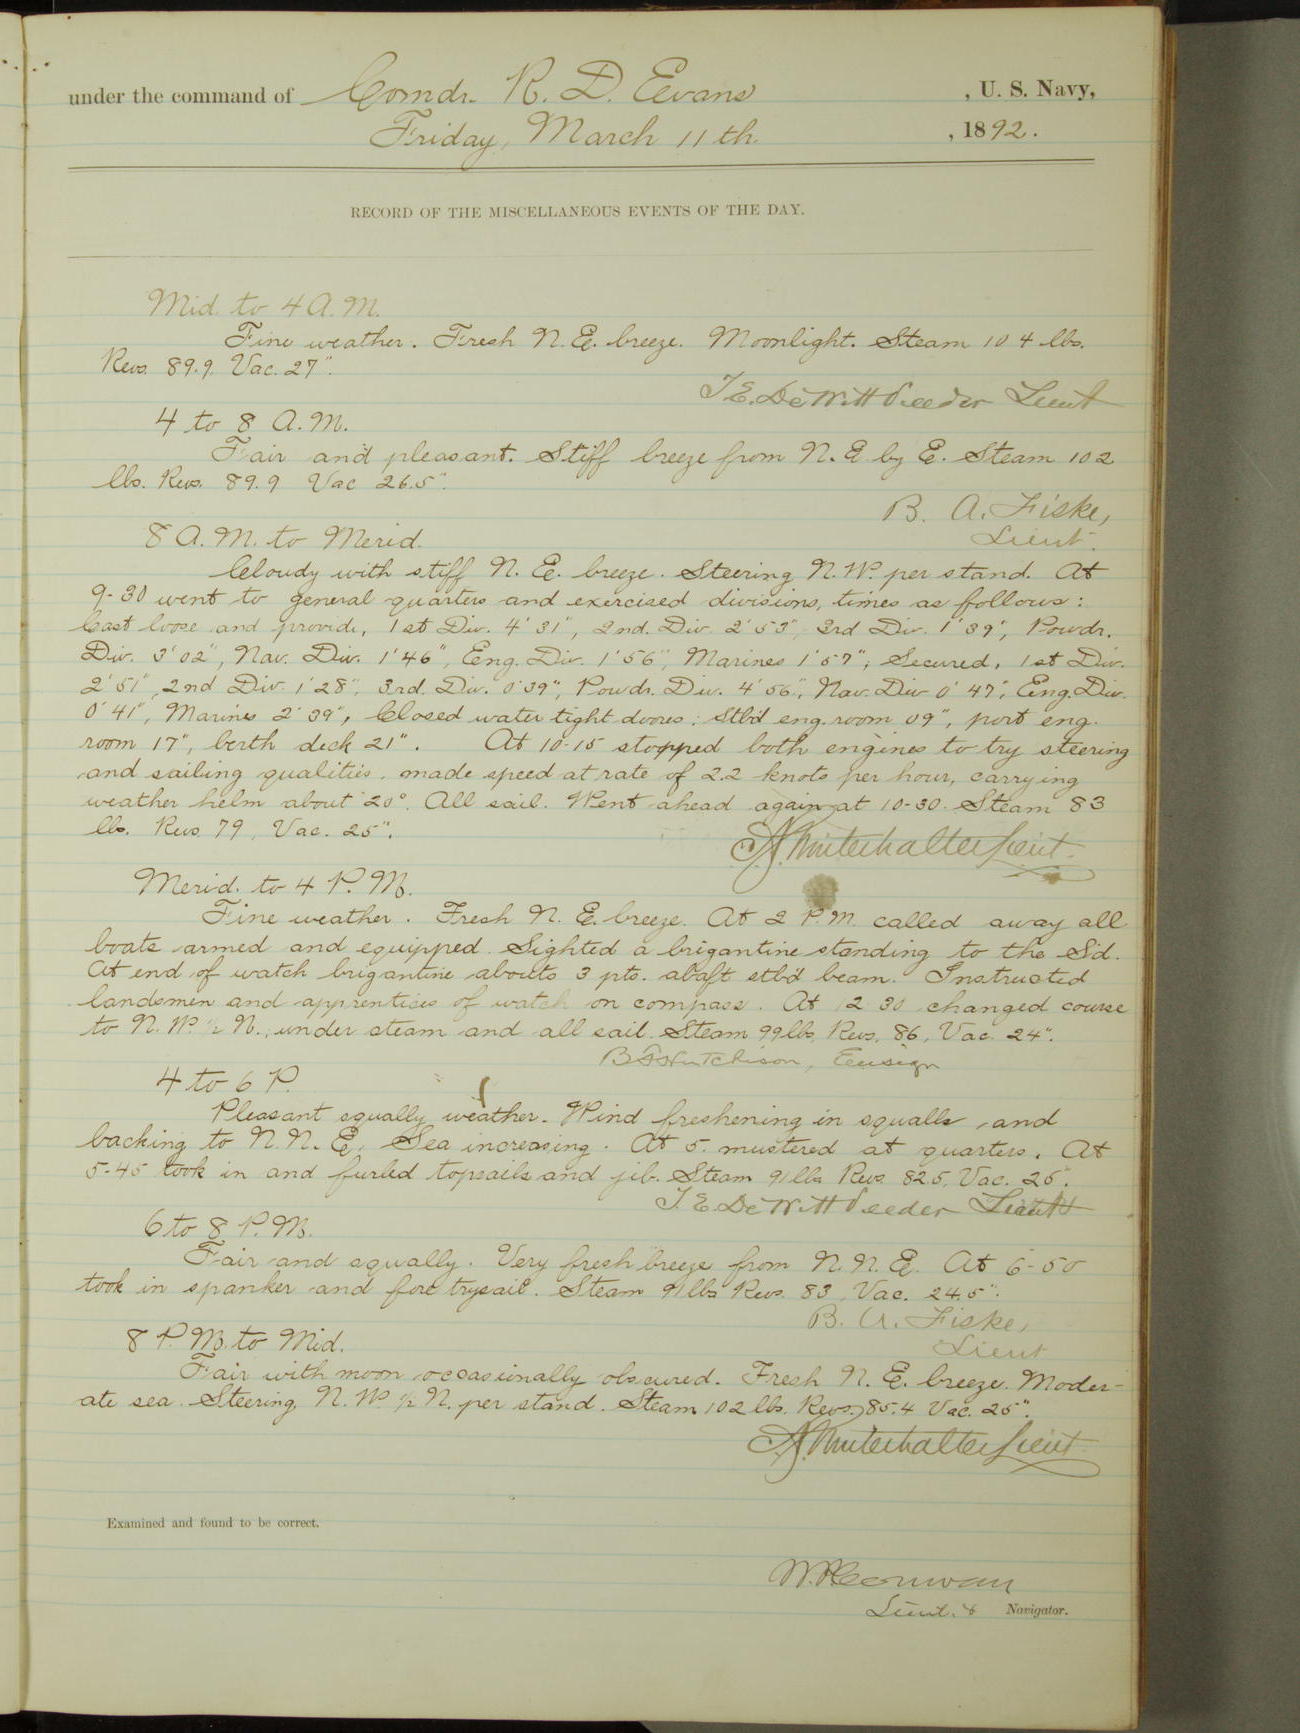 under the command of Comdr. R. D. Evans , U. S. Navy,
Friday, March 11th. , 1892.
RECORD OF THE MISCELLANEOUS EVENTS OF THE DAY.
Mid. to 4 A.M.
Fine weather. Fresh N. E. breeze. Moonlight. Steam 104 lbs.
Revs. 89.9. Vac. 27".
T.E. DeWitt Veeder Lieut
4 to 8 A.M.
Fair and pleasant. Stiff breeze from N. E. by E. Steam 102
lbs. Revs. 89.9 Vac 26.5".
B. A. Fiske,
Lieut.
8 A.M. to Merid.
Cloudy with stiff N. E. breeze. Steering N.W. per stand. At
9-30 went to general quarters and exercised divisions, times as follows:
Cast loose and provide, 1st Div. 4' 31", 2nd. Div 2' 53", 3rd Div. 1' 39", Powdr.
Div. 3' 02", Nav. Div. 1' 46", Eng. Div. 1' 56", Marines 1' 57"; Secured, 1st Div.
2' 51", 2nd Div. 1' 28", 3rd. Div. 0' 39", Powdr. Div. 4' 56", Nav. Div 0' 47", Eng. Div.
0' 41", Marines 2' 39", Closed water tight doors: Stbd eng. room 09", port eng.
room 17", berth deck 21". At 10-15 stopped both engines to try steering
and sailing qualities. made speed at rate of 2.2 knots per hour, carrying
weather helm about 20°. All sail. Went ahead again at 10-30. Steam 83
lbs. Revs. 79, Vac. 25".
A. Winterhalter Lieut.
Merid. to 4 P.M.
Fine weather. Fresh N. E. breeze. At 2 P.M. called away all
boats armed and equipped. Sighted a brigantine standing to the Sd.
At end of watch brigantine abouts 3 pts. abaft stbd beam. Instructed
landsmen and apprentices of watch on compass. At 2 30 changed course
to N. W. ½ N., under steam and all sail. Steam 99 lbs. Revs. 86, Vac. 24".
B F Hutchison, Ensign
4 to 6 P.
Pleasant squally weather. Wind freshening in squalls and
backing to N. N. E. Sea increasing. At 5. mustered at quarters. At
5-45 took in and furled topsails and jib. Steam 91 lbs Revs 82.5, Vac. 25".
T. E. DeWitt Veeder Lieut
6 to 8 P.M.
Fair and squally. Very fresh breeze from N. N. E. At 6-50
took in spanker and fore trysail. Steam 91 lbs Revs. 83, Vac. 24.5".
B. A. Fiske,
Lieut
8 P.M. to Mid.
Fair with moon occasionally obscured. Fresh N. E. breeze. Moder-
ate sea. Steering N. W. ½ N. per stand. Steam 102 lbs. Revs. 85.4 Vac. 25".
A. Winterhalter Lieut.
Examined and found to be correct.
Lieut. & Navigator.